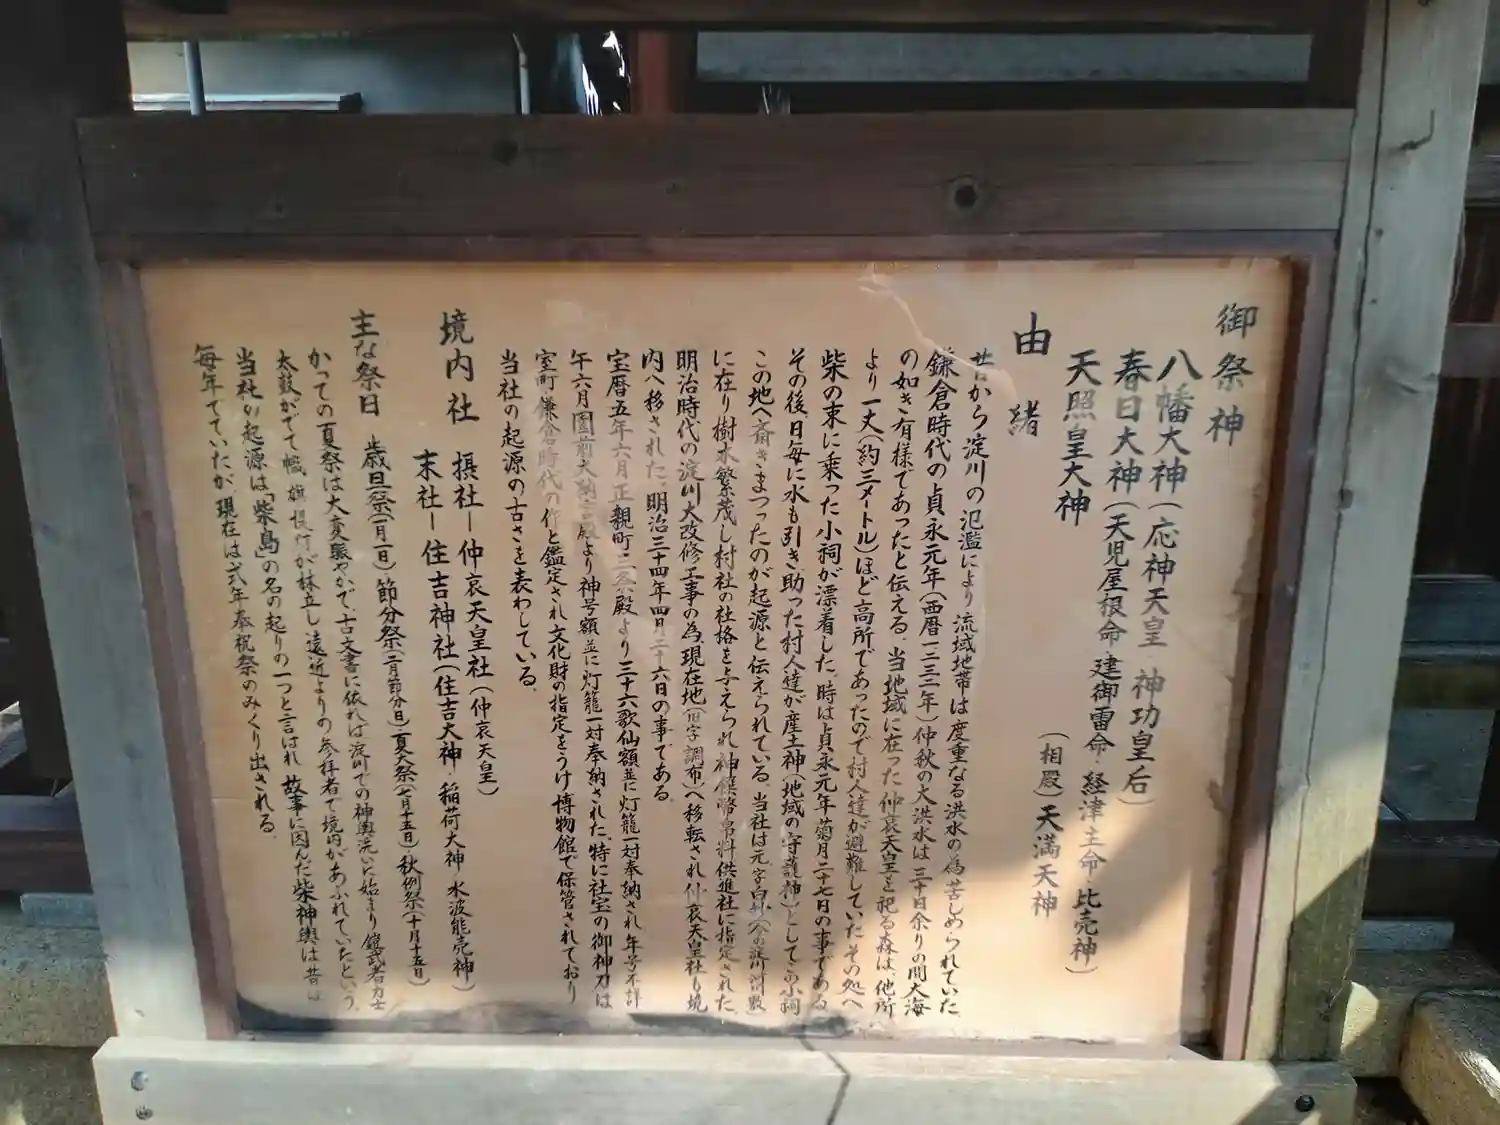 御祭神
八幡大神（応神天皇　神功皇后）
春日大神（天児屋根命　建御雷命・経津主命・比売神）
天照皇大神　（相殿）天満天神
由緒
昔から淀川の氾濫により流域地帯は度重なる洪水の為苦しめられていた
鎌倉時代の貞永元年（西暦一二三二年）仲秋の大洪水は三十日余りの間大海
の如き有様であったと伝える。当地域に在った仲哀天皇を祀る森は、他所
より一丈（約三メートル）ほど高所であったので村人達が避難していたその処へ
柴の束に乗った小祠が漂着した。時は貞永元年菊月二十七日の事である
その後、日毎に水も引き助った村人達が産土神（地域の守護神）としてこの小祠
この地へ斎きまつったのが起源と伝えられている。当社は元、字白丼（今の淀川河敷
に在り樹木繁茂し村社の社格を与えられ神饌幣帛料供進社に指定された
明治時代の淀川大改修工事の為、現在地（旧字調布）へ移転され仲哀天皇社も境
内へ移された。明治三十四年四月二十六日の事である。
宝暦五年六月正親町三条殿より三十六歌仙額並に灯籠一対奉納され年号不詳
午六月園前大納言殿より神号額並に灯籠一対奉納された。特に社宝の御神刀は
室町鎌倉時代の作と鑑定され文化財の指定をうけ博物館で保管されており
当社の起源の古さを表わしている。
境内社　摂社―仲哀天皇社（仲哀天皇）
末社―住吉神社（住吉大神・稲荷大神・水波能売神）
主な祭日　歳旦祭（一月一日）節分祭（二月節分日）・夏大祭（七月十五日）秋例祭（十月十五日）
かっての夏祭は大変賑やかで、古文書に依れば淀川での神輿洗いに始まり鎧武者力士
太鼓がでて幟、旗提灯が林立し遠近よりの参拝者で境内があふれていたという。
当社が起源は「柴島の名の起りの一つと言はれ故事に因んだ柴神輿は昔は
毎年でていたが現在は式年奉祝祭のみくり出される。